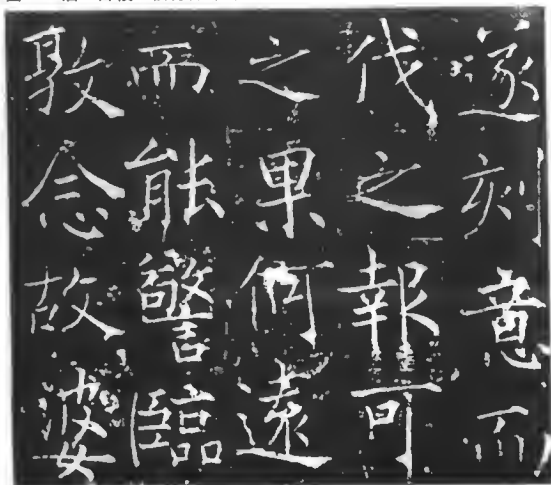 遂刻意而
伐之報可
之果何遠
而能警臨
敦念故婆